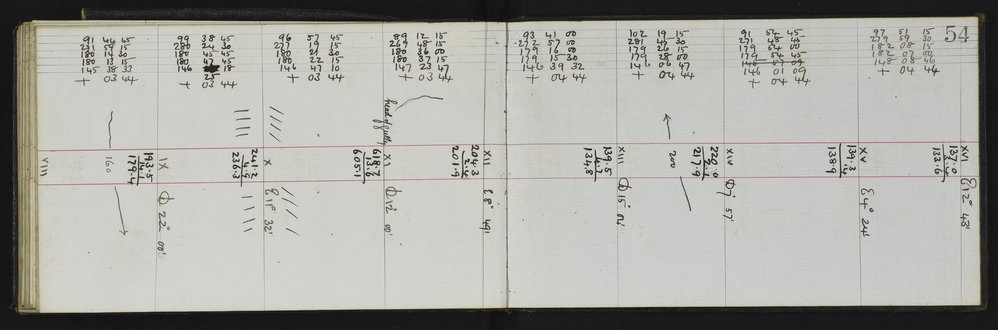 54
91 44 45
271 59 15
180 14 30
180 13 15
145 38 33
+ 03 44
99 38 45
280 24 30
180 45 45
180 47 45
146 18
25
+ 03 44
96 57 45
277 19 15
180 21 30
180 22 15
146 47 10
+ 03 44
89 12 15
269 48 15
180 36 00
180 37 15
147 23 47
+ 03 44
93 41 00
272 57 00
179 16 00
179 15 30
146 39 32
+ 04 44
102 19 15
281 45 30
179 26 15
179 28 00
146 06 47
+ 04 44
91 54 45
271 48 45
179 54 00
146 01 09
+ 04 44
97 51 15
279 59 30
182 08 15
182 07 00
148 08 46
+ 04 44
head of gully
VIII
160
IX
193.5
14.1
179.4
22° 00'
X
241.2
4.9
236.3
11° 32'
XI
618.7
13.6
605.1
12° 00'
XII
204.3
2.4
201.9
8° 49'
XIII
139.5
4.7
134.8
15° 04'
200
XIV
220.0
2.1
217.9
57'
XV
139.3
.4
138.9
4° 24'
XVI
137.0
3.4
133.6
12° 43'